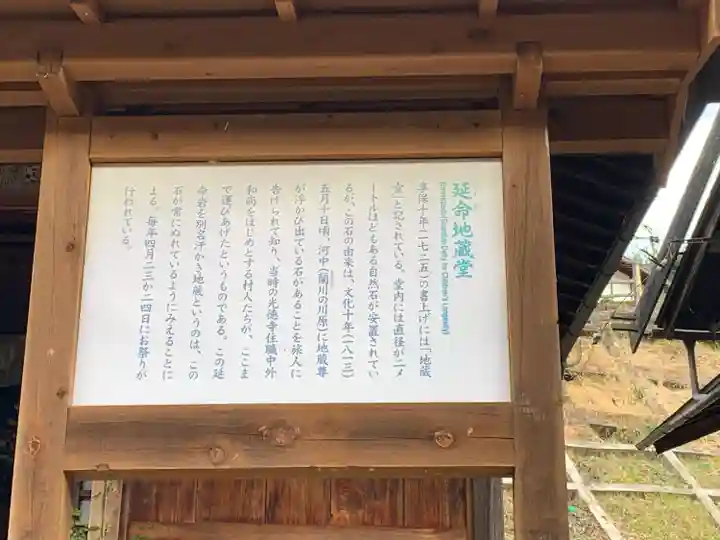 延命地蔵堂
享保十年(一七二五)の書上げには「地蔵
堂」と記されている。堂内には直径が二メ
ートルほどもある自然石が安置されてい
るが、この石の由来は、文化十年(一八一三)
五月十日頃、河中(蘭川の川原)に地蔵尊
が浮かび出ている石があることを旅人に
告げられて知り、当時の光徳寺住職中外
和尚をはじめとする村人たちが、ここま
で運びあげたというものである。この延
命岩を別名汗かき地蔵というのは、この
石が常にぬれているようにみえることに
よる。毎年四月二三か二四日にお祭りが
行われている。